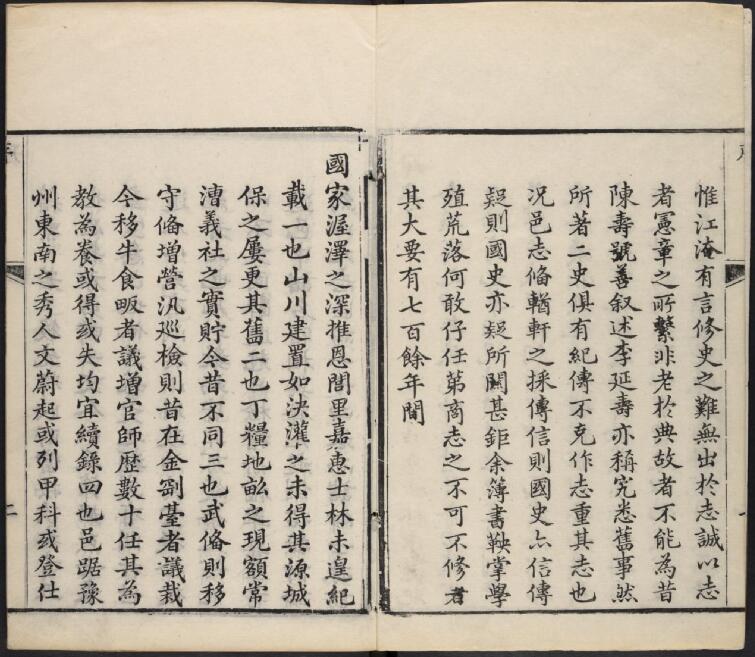 惟江淹有言修史之難無出於志誠以志
者憲章之所繫非老於典故者不能為昔
陳壽號善叙述李延壽亦稱究悉舊事然
所著二史俱有紀傳不克作志重其志也
况邑志偹輶軒之採傳信則國史亦信傳
疑則國史亦疑所關甚鉅余簿書鞅掌學
殖荒落何敢仔任第商志之不可不修者
其大要有七百餘年間
國家渥澤之深推恩閭里嘉惠士林未遑紀
載一也山川建置如決灌之未得其源城
保之屢更其舊二也丁糧地畝之現額常
漕義社之實貯今昔不同三也武偹則移
守偹增營汛巡檢則昔在金剛臺者議裁
今移牛食畈者議増官師歴數十任其為
教為養或得或失均宜續錄四也邑踞豫
州東南之秀人文蔚起或列甲科或登仕
二